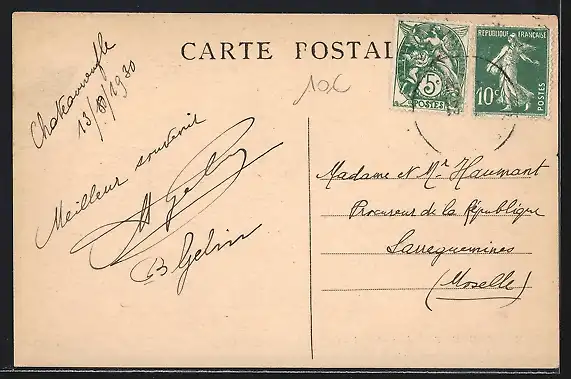 CARTE POSTAL
5c
POSTES
REPUBLIQUE FRANÇAISE
10c
POSTES
10€
13/8/1930
Meilleur souvenir
B Gelin
Madame et Mr Haumant
Procureur de la République
Sarreguemines
(Moselle)